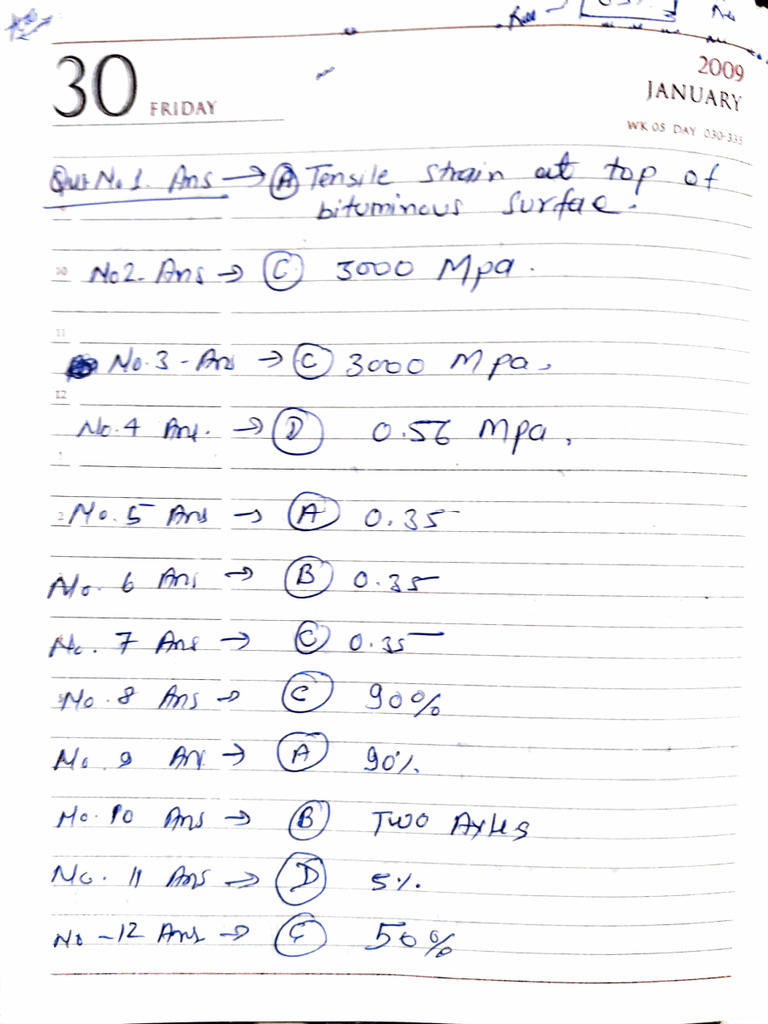 30 FRIDAY
2009
JANUARY
WK 05 DAY 030-335
No 1. Ans → (A) Tensile strain at top of
bituminous surface.
10 No 2- Ans → (C) 3000 Mpa.
11
No. 3 - Ans → (C) 3000 Mpa.
12
No. 4 Ans. → (D) 0.56 Mpa.
1
2 No. 5 Ans → (A) 0.35
No. 6 Ans → (B) 0.35
No. 7 Ans → (C) 0.35
No. 8 Ans → (C) 90%
No. 9 Ans → (A) 90%
No. 10 Ans → (B) Two Axles
No. 11 Ans → (D) 5%
No -12 Ans → (C) 50%